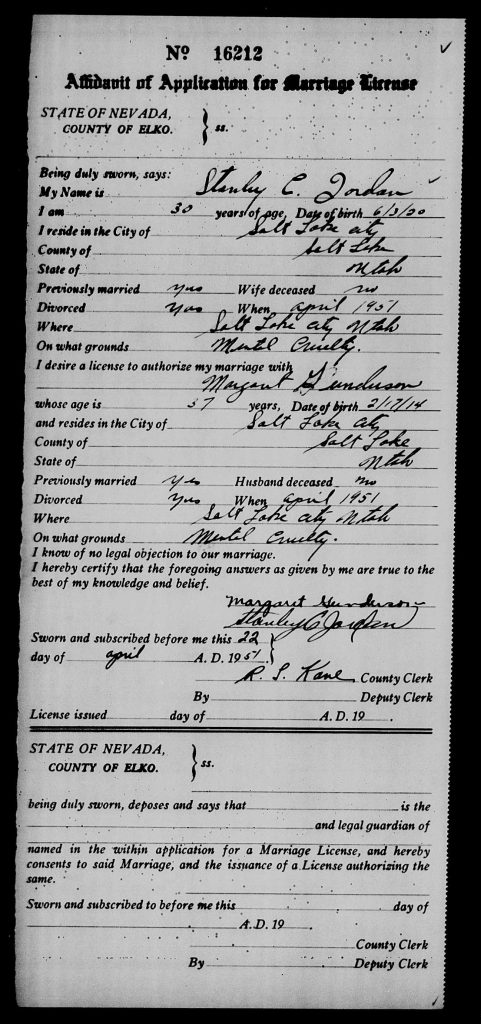 No 16212
Affidavit of Application for Marriage License
STATE OF NEVADA,
COUNTY OF ELKO. } ss.
Being duly sworn, says:
My Name is Stanley C. Jordan
I am 30 years of age, Date of birth 6/3/20
I reside in the City of Salt Lake City
County of Salt Lake
State of Utah
Previously married Yes Wife deceased no
Divorced Yes When April 1951
Where Salt Lake City Utah
On what grounds Mental Cruelty.
I desire a license to authorize my marriage with
Margaret Gunderson
whose age is 37 years, Date of birth 2/17/14
and resides in the City of Salt Lake City
County of Salt Lake
State of Utah
Previously married Yes Husband deceased no
Divorced Yes When April 1951
Where Salt Lake City Utah
On what grounds Mental Cruelty.
I know of no legal objection to our marriage.
I hereby certify that the foregoing answers as given by me are true to the
best of my knowledge and belief.
Margaret Gunderson
Stanley C Jordan
Sworn and subscribed before me this 22
day of April A. D. 1951
R. S. Kane County Clerk
By Deputy Clerk
License issued day of A. D. 19 .
STATE OF NEVADA,
COUNTY OF ELKO. } ss.
being duly sworn, deposes and says that is the
and legal guardian of
named in the within application for a Marriage License, and hereby
consents to said Marriage, and the issuance of a License authorizing the
same.
Sworn and subscribed to before me this day of
A. D. 19 .
County Clerk
By Deputy Clerk